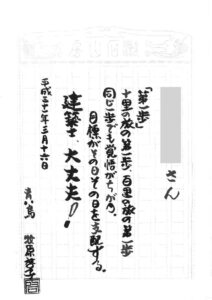 さん
「第一歩」
十里の旅の第一歩、百里の旅の第一歩
同じ一歩でも覚悟がちがう。
目標がその日その日を支配する。
建築士、大丈夫!
平成三十一年三月十六日
青い鳥